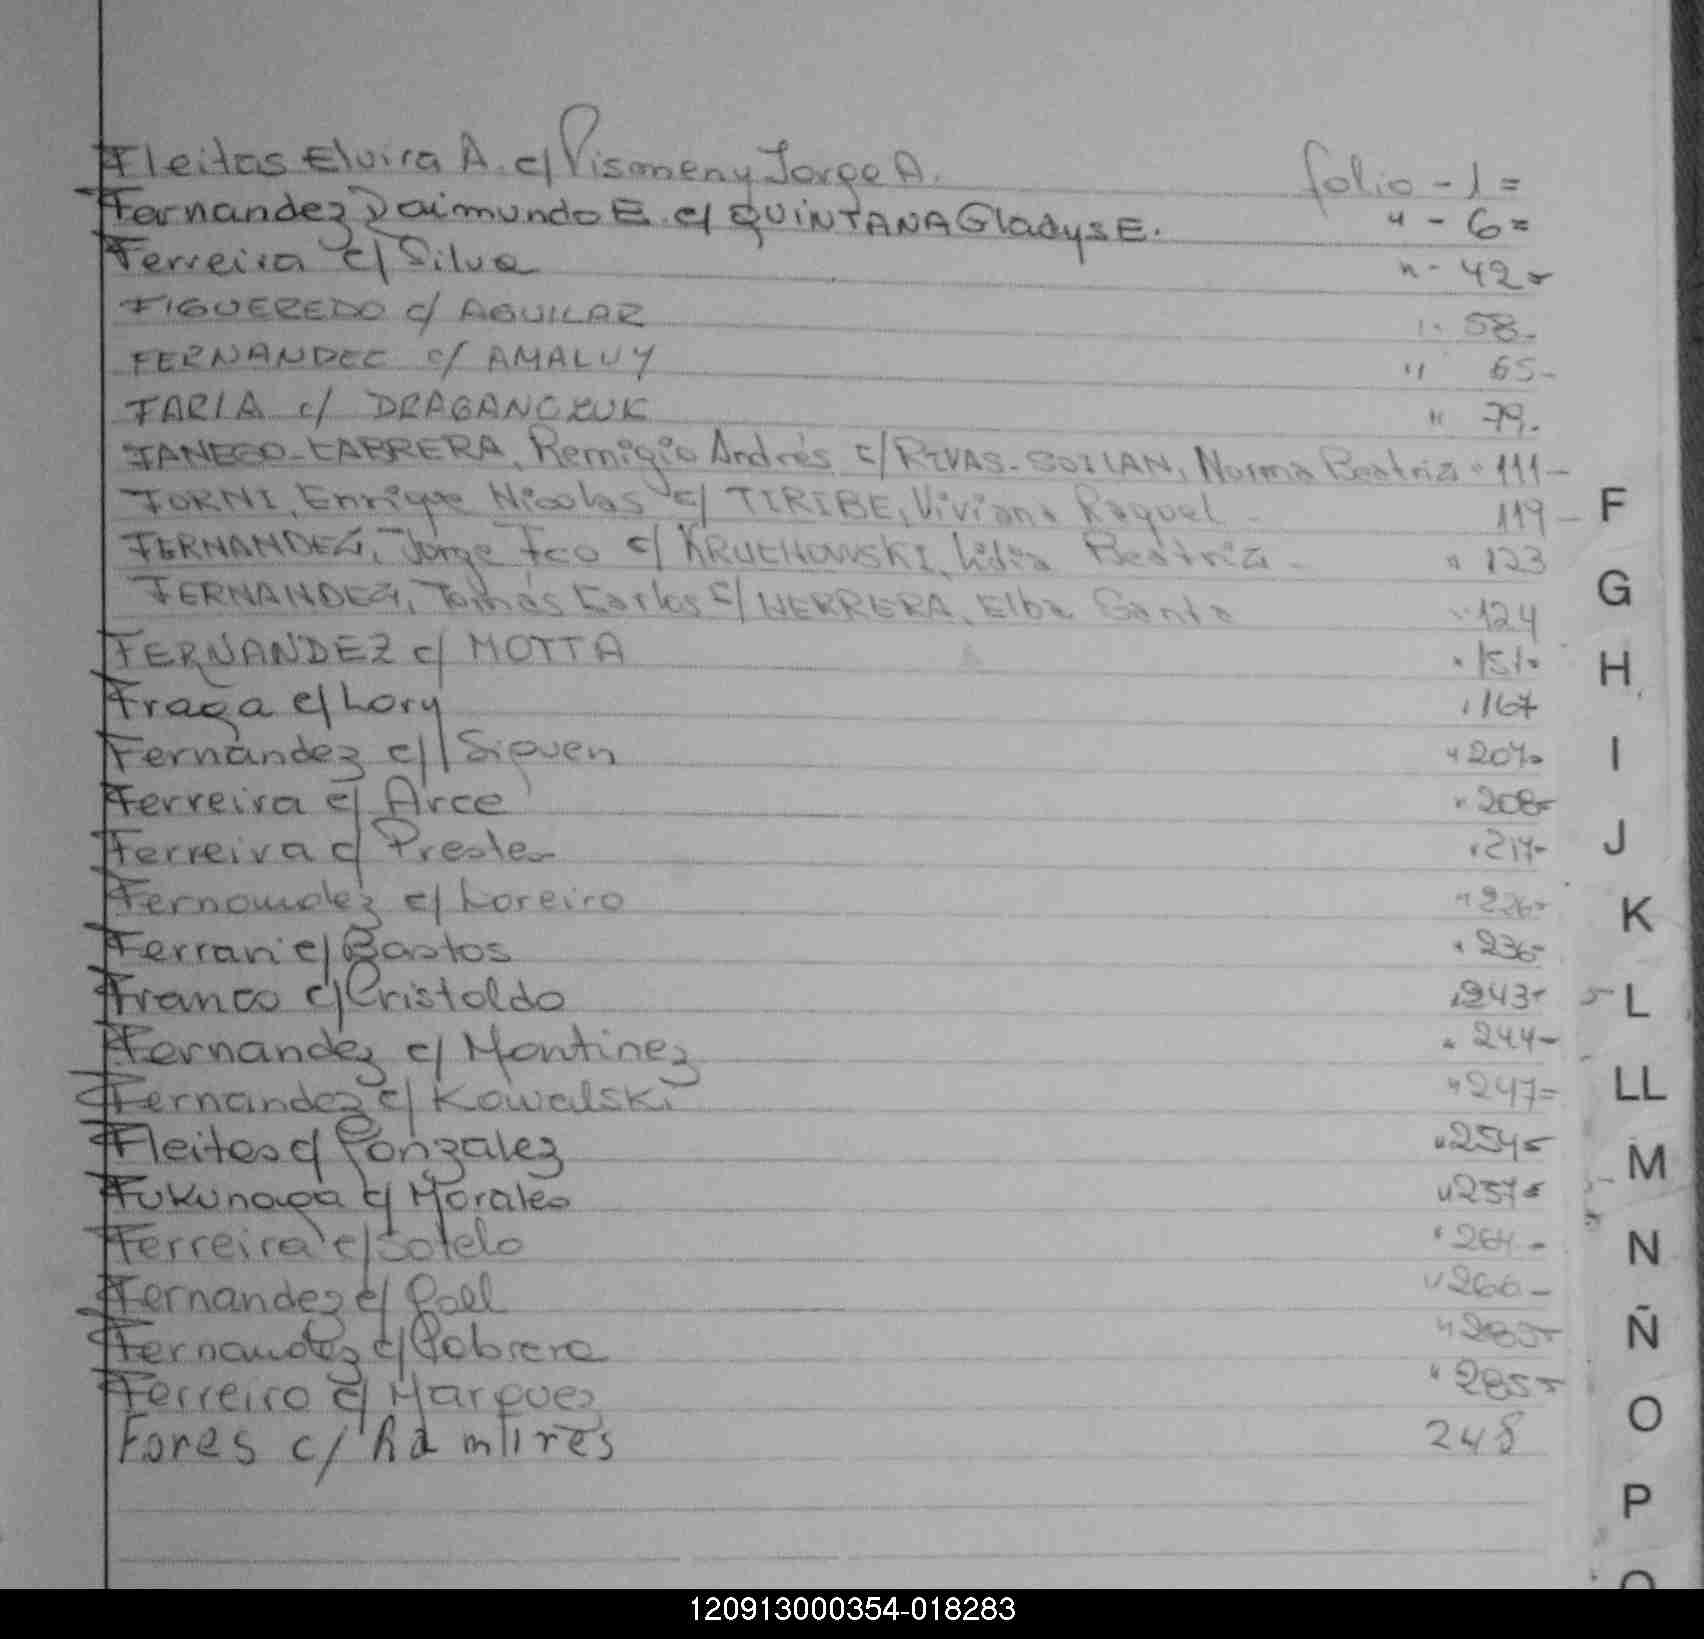 Fleitas Elvira A. c/ Pismeny Jorge A. folio - 1 =
Fernandez Daimundo E. c/ QUINTANA Gladys E. " - 6 =
Ferreira c/ Silva " - 42 -
FIGUEREDO c/ AGUILAR " 58 -
FERNANDEZ c/ AMALUY " 65 -
FARIA c/ DRAGANCZUK " 79.
FANEGO-CABRERA, Remigio Andrés c/ RIVAS-SOILAN, Norma Beatriz " 111 -
FORNI, Enrique Nicolas c/ TIRIBE, Viviana Raquel - 119 -
FERNANDEZ, Jorge Fco c/ KRUCHOWSKI, Lidia Beatriz - " 123
FERNANDEZ, Tomás Carlos c/ HERRERA, Elba Santa " 124
FERNANDEZ c/ MOTTA " 151 -
Fraga c/ Lory " 167
Fernández c/ " 207 -
Ferreira c/ Arce " 208 -
Ferreira c/ Prestes " 217 -
Fernandez c/ Loreiro " 226 -
Ferrari c/ Bastos " 236 -
Franco c/ Cristaldo " 243 -
Fernandez c/ Montinez " 244 -
Fernandez c/ Kowalski " 247 =
Fleitas c/ Gonzalez " 254 -
Fukunaga c/ Morales " 257 -
Ferreira c/ Sotelo " 264 -
Fernandez c/ " 266 -
Fernandez c/ Cabrera "
Ferreiro c/ Marquez " 285 -
Fores c/ Ramires 248
F
G
H
I
J
K
L
LL
M
N
Ñ
O
P
120913000354-018283